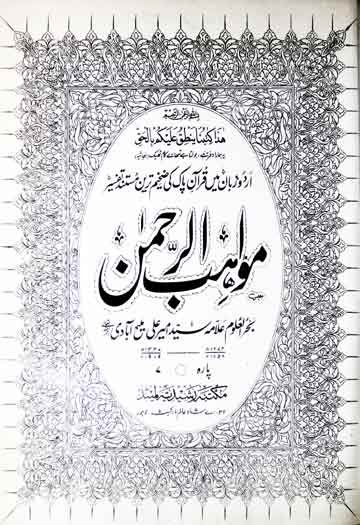 بسم اللہ الرحمن الرحیم
هذا كتبنا ينطق عليكم بالحق
اردو زبان میں قرآن پاک کی ضخیم ترین مستند تفسیر
مواہب الرحمن
بحر العلوم علامہ سید امیر علی ملیح آبادی
پارہ ۷
مکتبہ رشیدیہ لمیٹڈ
۳۲۔اے شاہ عالم مارکیٹ، لاہور